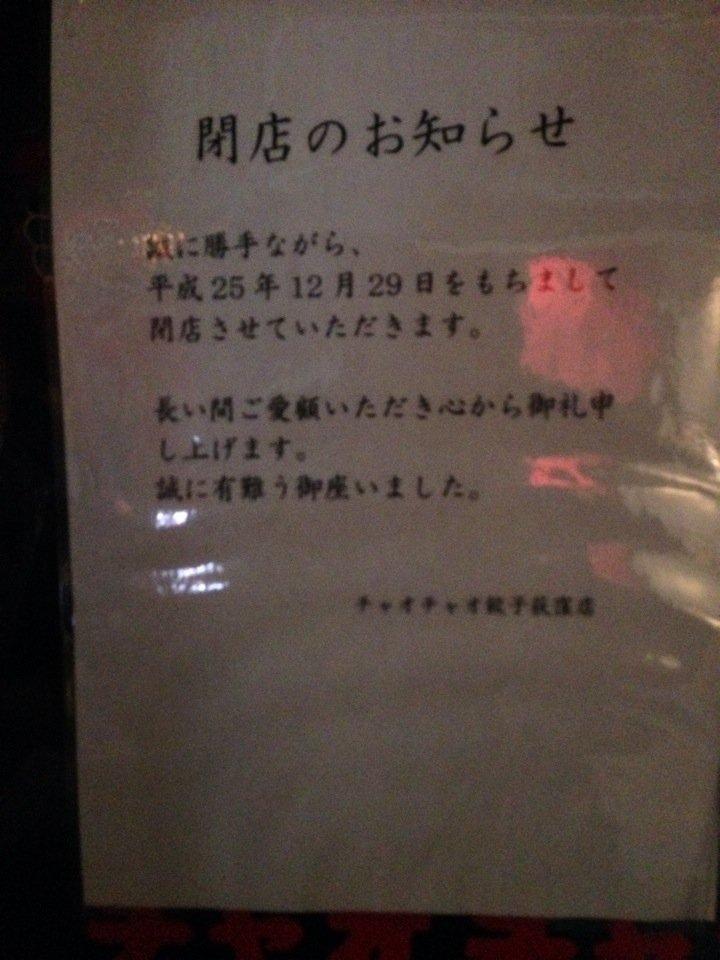 閉店のお知らせ
誠に勝手ながら、
平成25年12月29日をもちまして
閉店させていただきます。
長い間ご愛顧いただき心から御礼申
し上げます。
誠に有難う御座いました。
チャオチャオ餃子荻窪店